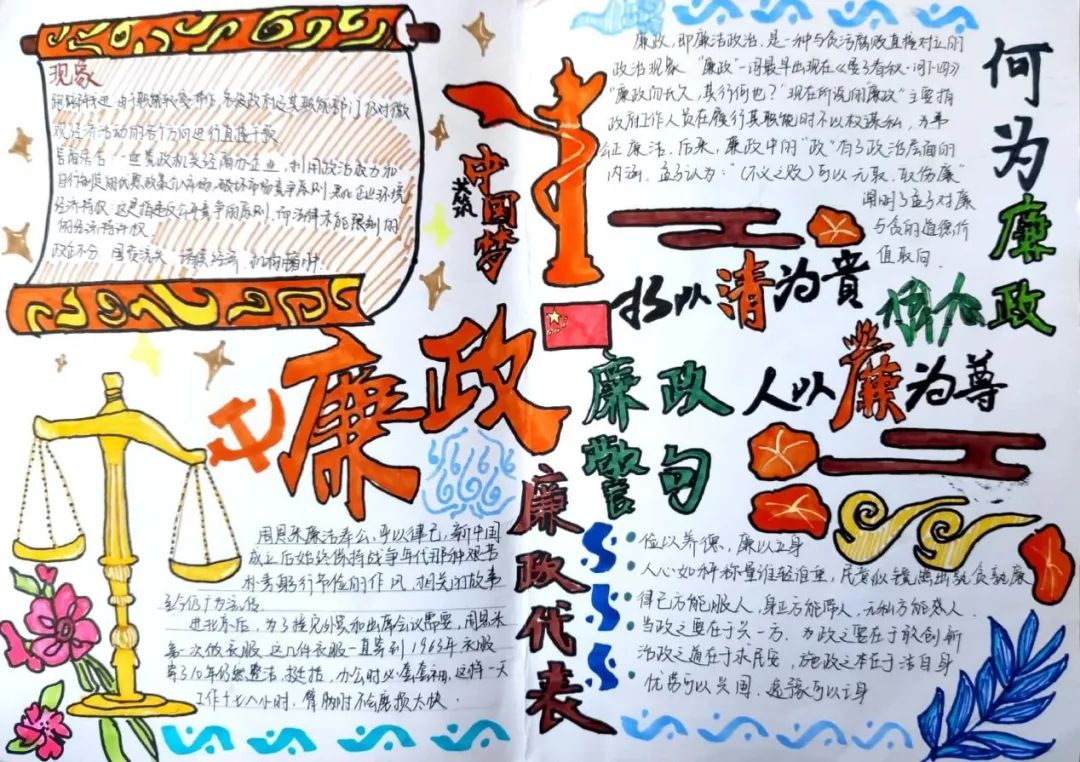 现象
由于职能转变滞后，各级政府及其职能部门仍对微
观经济活动的各个方向进行直接干预
官商杂合 一些党政机关经商办企业，利用政治权力和
自行制定的优惠政策介入市场，破坏市场竞争原则，恶化企业环境
经济特权 这是指违反公开竞争的原则，而法律不能限制的
的经济特许权
政企不分，国资流失，诸侯经济，机构臃肿.
共筑
中国梦
廉政
周恩来廉洁奉公，严以律己，新中国
成立后始终保持战争年代那种艰苦
朴素勤行节俭的作风，相关的故事
至今仍广为流传
进北京后，为了接见外宾和出席会议需要，周恩来
每一次做衣服，这几件衣服一直穿到1963年，衣服
穿了10年仍然整洁、挺括，办公时必套套袖，这样一天
工作十七八小时，臂腕时不会磨损太快.
廉政代表
廉政，即廉洁政治，是一种与贪污腐败直接对立的
政治现象 "廉政"一词最早出现在《晏子春秋·问下四》
"廉政而长久，其行何也？"现在所说的廉政"主要指
政府工作人员在履行其职能时不以权谋私，办事
公正廉洁，后来，廉政中的"政"有了政治层面的
内涵，孟子认为："（不义之财）可以无取，取伤廉"
阐明了孟子对廉
与贪的道德价
值取向.
何为廉政
物以清为贵
人以廉为尊
廉政
警句
俭以养德，廉以立身
人心如秤称量谁轻谁重，民意似镜照出孰贪孰廉
律己方能服人，身正方能带人，无私方能感人.
当政之要在于兴一方，为政之要在于敢创新
治政之道在于求民安，施政之本在于洁自身
优劳可以兴国，逸豫可以亡身